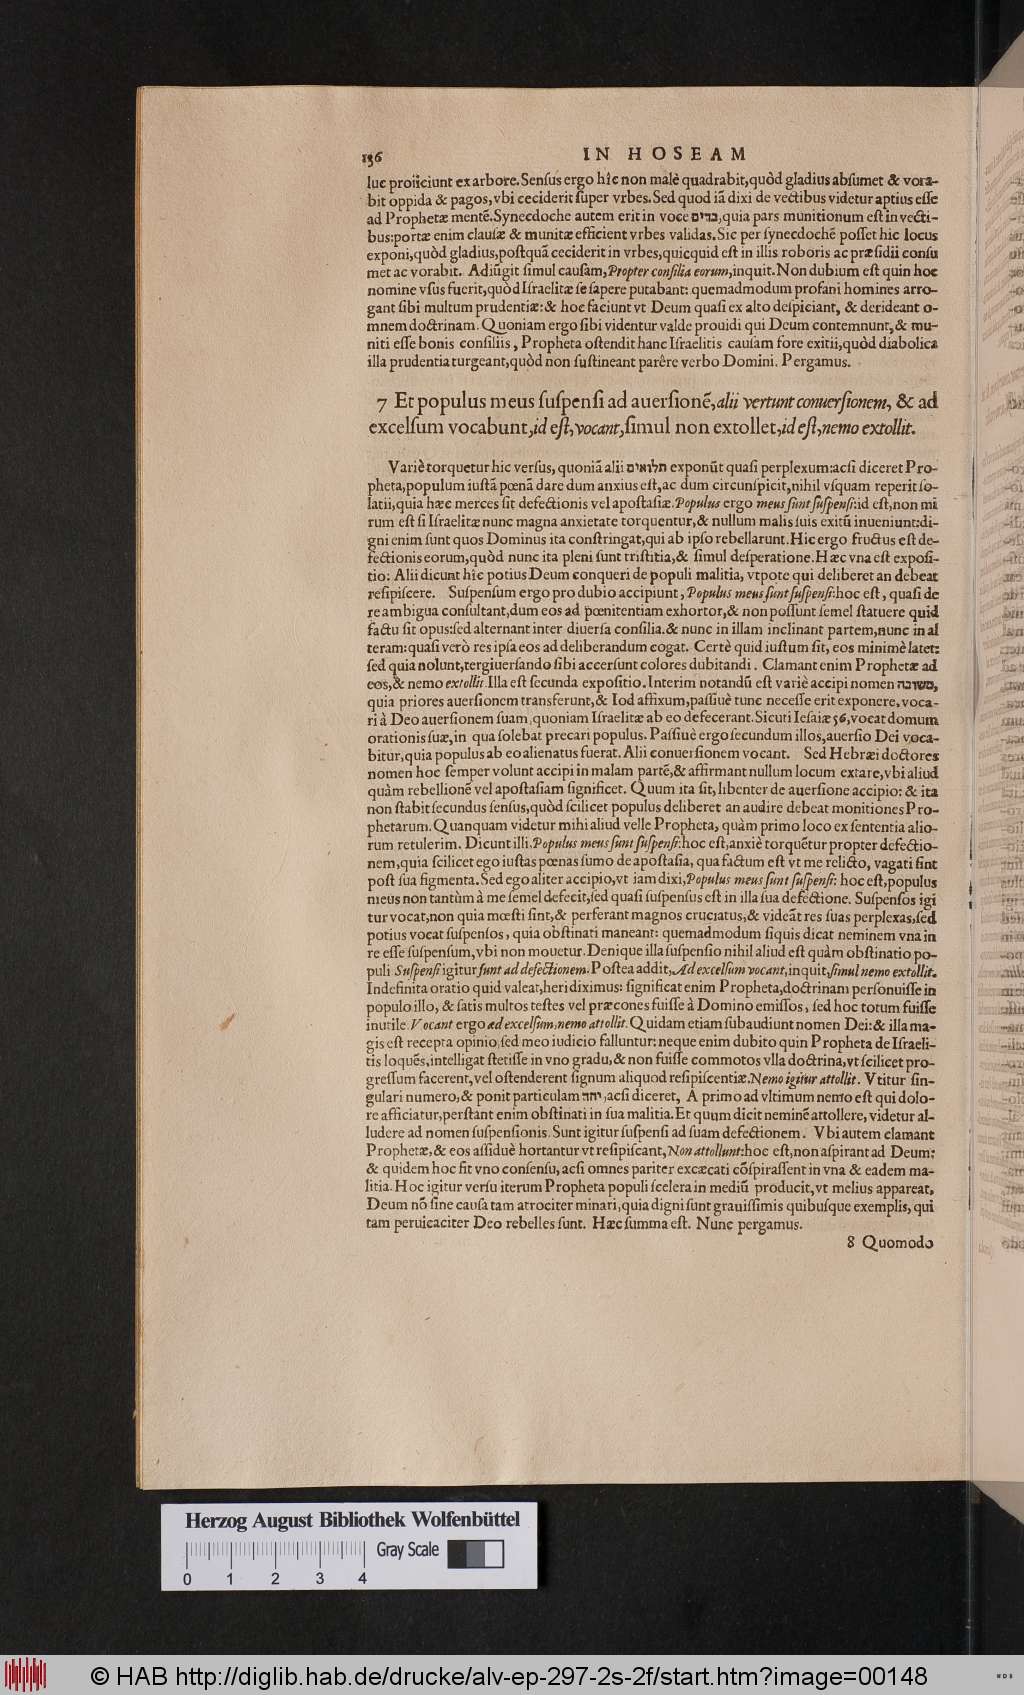 156 IN HOSEAM
luc proiiciunt ex arbore. Senſus ergo hîc non malè quadrabit, quòd gladius abſumet & vora-
bit oppida & pagos, vbi ceciderit ſuper vrbes. Sed quod iā dixi de vectibus videtur aptius eſſe
ad Prophetæ mentē. Synecdoche autem erit in voce בדים, quia pars munitionum eſt in vecti-
bus: portæ enim clauſæ & munitæ efficient vrbes validas. Sic per ſynecdochē poſſet hic locus
exponi, quòd gladius, poſtquā ceciderit in vrbes, quicquid eſt in illis roboris ac præſidii conſu
met ac vorabit. Adiūgit ſimul cauſam, Propter conſilia eorum, inquit. Non dubium eſt quin hoc
nomine vſus fuerit, quòd Iſraelitæ ſe ſapere putabant: quemadmodum profani homines arro-
gant ſibi multum prudentiæ: & hoc faciunt vt Deum quaſi ex alto deſpiciant, & derideant o-
mnem doctrinam. Quoniam ergo ſibi videntur valde prouidi qui Deum contemnunt, & mu-
niti eſſe bonis conſiliis, Propheta oſtendit hanc Iſraelitis cauſam fore exitii, quòd diabolica
illa prudentia turgeant, quòd non ſuſtineant parêre verbo Domini. Pergamus.
7 Et populus meus ſuſpenſi ad auerſionē, alii vertunt conuerſionem, & ad
excelſum vocabunt, id eſt, vocant, ſimul non extollet, id eſt, nemo extollit.
Variè torquetur hic verſus, quoniā alii תלואים exponūt quaſi perplexum: acſi diceret Pro-
pheta, populum iuſtā pœnā dare dum anxius eſt, ac dum circunſpicit, nihil vſquam reperit ſo-
latii, quia hæc merces ſit defectionis vel apoſtaſiæ. Populus ergo meus ſunt ſuſpenſi: id eſt, non mi
rum eſt ſi Iſraelitæ nunc magna anxietate torquentur, & nullum malis ſuis exitū inueniunt: di-
gni enim ſunt quos Dominus ita conſtringat, qui ab ipſo rebellarunt. Hic ergo fructus eſt de-
fectionis eorum, quòd nunc ita pleni ſunt triſtitia, & ſimul deſperatione. Hæc vna eſt expoſi-
tio: Alii dicunt hîc potius Deum conqueri de populi malitia, vtpote qui deliberet an debeat
reſipiſcere. Suſpenſum ergo pro dubio accipiunt, Populus meus ſunt ſuſpenſi: hoc eſt, quaſi de
re ambigua conſultant, dum eos ad pœnitentiam exhortor, & non poſſunt ſemel ſtatuere quid
factu ſit opus: ſed alternant inter diuerſa conſilia. & nunc in illam inclinant partem, nunc in al
teram: quaſi verò res ipſa eos ad deliberandum cogat. Certè quid iuſtum ſit, eos minimè latet:
ſed quia nolunt, tergiuerſando ſibi accerſunt colores dubitandi. Clamant enim Prophetæ ad
eos, & nemo extollit. Illa eſt ſecunda expoſitio. Interim notandū eſt variè accipi nomen משובה,
quia priores auerſionem transferunt, & Iod affixum, paſſiuè tunc neceſſe erit exponere, voca-
ri à Deo auerſionem ſuam, quoniam Iſraelitæ ab eo defecerant. Sicuti Ieſaiæ 56, vocat domum
orationis ſuæ, in qua ſolebat precari populus. Paſſiuè ergo ſecundum illos, auerſio Dei voca-
bitur, quia populus ab eo alienatus fuerat. Alii conuerſionem vocant. Sed Hebræi doctores
nomen hoc ſemper volunt accipi in malam partē, & affirmant nullum locum extare, vbi aliud
quàm rebellionē vel apoſtaſiam ſignificet. Quum ita ſit, libenter de auerſione accipio: & ita
non ſtabit ſecundus ſenſus, quòd ſcilicet populus deliberet an audire debeat monitiones Pro-
phetarum. Quanquam videtur mihi aliud velle Propheta, quàm primo loco ex ſententia alio-
rum retulerim. Dicunt illi. Populus meus ſunt ſuſpenſi: hoc eſt, anxiè torquētur propter defectio-
nem, quia ſcilicet ego iuſtas pœnas ſumo de apoſtaſia, qua factum eſt vt me relicto, vagati ſint
poſt ſua figmenta. Sed ego aliter accipio, vt iam dixi, Populus meus ſunt ſuſpenſi: hoc eſt, populus
meus non tantùm à me ſemel defecit, ſed quaſi ſuſpenſus eſt in illa ſua defectione. Suſpenſos igi
tur vocat, non quia mœſti ſint, & perferant magnos cruciatus, & videāt res ſuas perplexas, ſed
potius vocat ſuſpenſos, quia obſtinati maneant: quemadmodum ſiquis dicat neminem vna in
re eſſe ſuſpenſum, vbi non mouetur. Denique illa ſuſpenſio nihil aliud eſt quàm obſtinatio po-
puli Suſpenſi igitur ſunt ad defectionem. Poſtea addit, Ad excelſum vocant, inquit, ſimul nemo extollit.
Indefinita oratio quid valeat, heri diximus: ſignificat enim Propheta, doctrinam perſonuiſſe in
populo illo, & ſatis multos teſtes vel præcones fuiſſe à Domino emiſſos, ſed hoc totum fuiſſe
inutile. Vocant ergo ad excelſum, nemo attollit. Quidam etiam ſubaudiunt nomen Dei: & illa ma-
gis eſt recepta opinio, ſed meo iudicio falluntur: neque enim dubito quin Propheta de Iſraeli-
tis loquēs, intelligat ſtetiſſe in vno gradu, & non fuiſſe commotos vlla doctrina, vt ſcilicet pro-
greſſum facerent, vel oſtenderent ſignum aliquod reſipiſcentiæ. Nemo igitur attollit. Vtitur ſin-
gulari numero, & ponit particulam יחד, acſi diceret, A primo ad vltimum nemo eſt qui dolo-
re afficiatur, perſtant enim obſtinati in ſua malitia. Et quum dicit neminē attollere, videtur al-
ludere ad nomen ſuſpenſionis. Sunt igitur ſuſpenſi ad ſuam defectionem. Vbi autem clamant
Prophetæ, & eos aſſiduè hortantur vt reſipiſcant, Non attollunt: hoc eſt, non aſpirant ad Deum:
& quidem hoc fit vno conſenſu, acſi omnes pariter excæcati cōſpiraſſent in vna & eadem ma-
litia. Hoc igitur verſu iterum Propheta populi ſcelera in mediū producit, vt melius appareat,
Deum nō ſine cauſa tam atrociter minari, quia digni ſunt grauiſſimis quibuſque exemplis, qui
tam peruicaciter Deo rebelles ſunt. Hæc ſumma eſt. Nunc pergamus.
8 Quomodo
Herzog August Bibliothek Wolfenbüttel
Gray Scale
0 1 2 3 4
© HAB http://diglib.hab.de/drucke/alv-ep-297-2s-2f/start.htm?image=00148